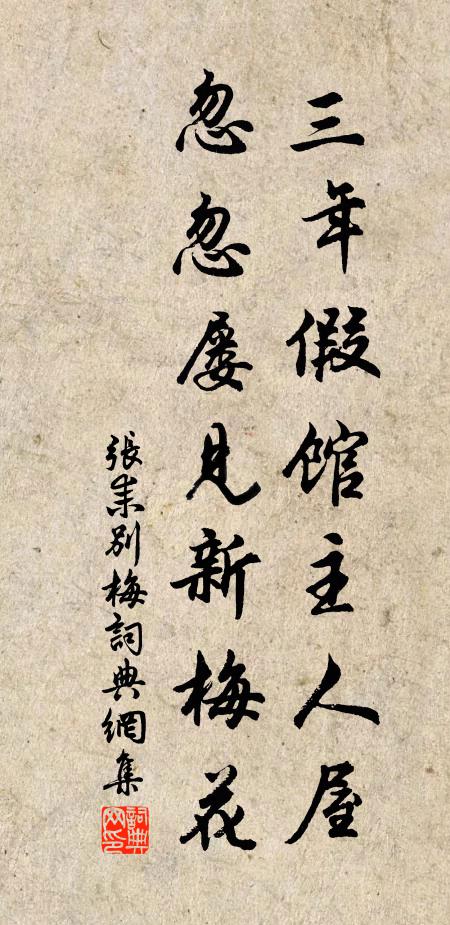 三年假馆主人屋
忽忽屡见新梅花
張耒別梅詞典網集
詞典网印